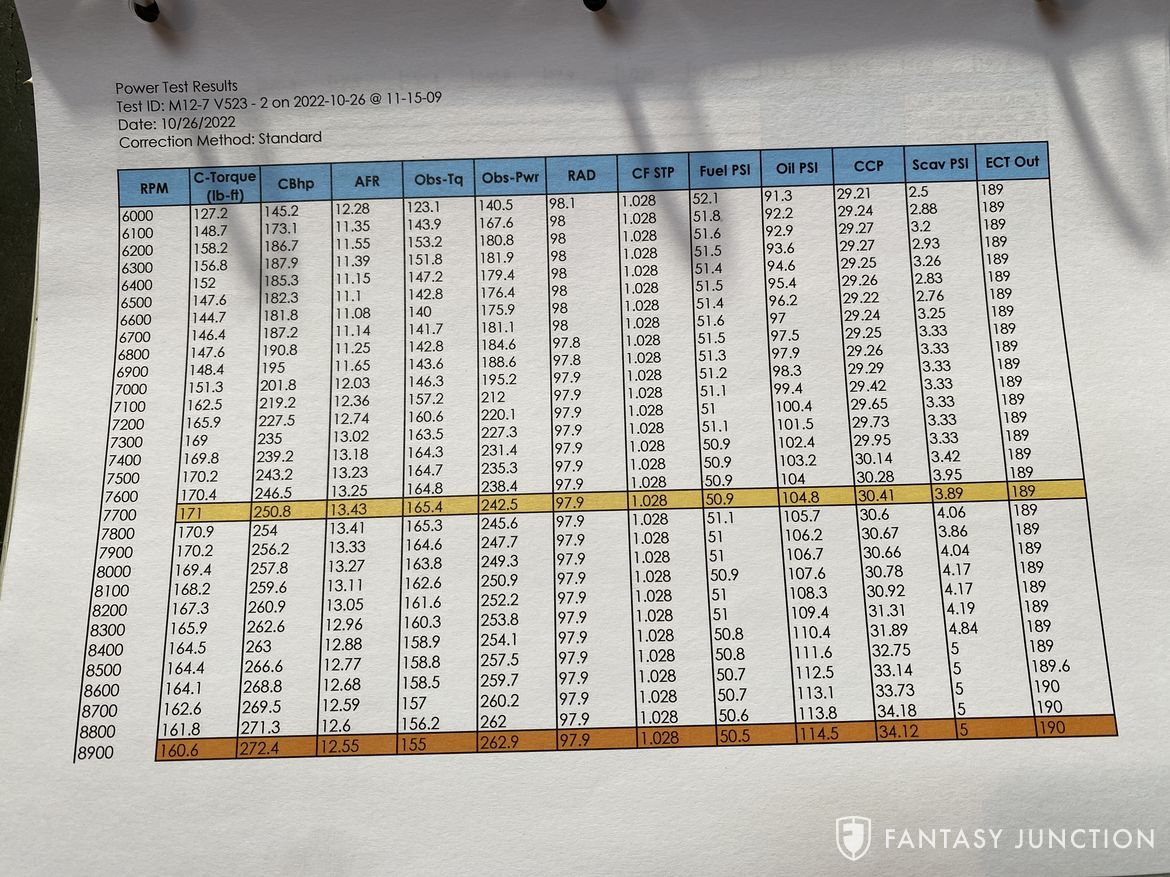 Power Test Results
Test ID: M12-7 V523 - 2 on 2022-10-26 @ 11-15-09
Date: 10/26/2022
Correction Method: Standard
RPM C-Torque (lb-ft) CBhp AFR Obs-Tq Obs-Pwr RAD CF STP Fuel PSI Oil PSI CCP Scav PSI ECT Out
6000 127.2 145.2 12.28 123.1 140.5 98.1 1.028 52.1 91.3 29.21 2.5 189
6100 148.7 173.1 11.35 143.9 167.6 98 1.028 51.8 92.2 29.24 2.88 189
6200 158.2 186.7 11.55 153.2 180.8 98 1.028 51.6 92.9 29.27 3.2 189
6300 156.8 187.9 11.39 151.8 181.9 98 1.028 51.5 93.6 29.27 2.93 189
6400 152 185.3 11.15 147.2 179.4 98 1.028 51.4 94.6 29.25 3.26 189
6500 147.6 182.3 11.1 142.8 176.4 98 1.028 51.5 95.4 29.26 2.83 189
6600 144.7 181.8 11.08 140 175.9 98 1.028 51.4 96.2 29.22 2.76 189
6700 146.4 187.2 11.14 141.7 181.1 98 1.028 51.6 97 29.24 3.25 189
6800 147.6 190.8 11.25 142.8 184.6 97.8 1.028 51.5 97.5 29.25 3.33 189
6900 148.4 195 11.65 143.6 188.6 97.8 1.028 51.3 97.9 29.26 3.33 189
7000 151.3 201.8 12.03 146.3 195.2 97.9 1.028 51.2 98.3 29.29 3.33 189
7100 162.5 219.2 12.36 157.2 212 97.9 1.028 51.1 99.4 29.42 3.33 189
7200 165.9 227.5 12.74 160.6 220.1 97.9 1.028 51 100.4 29.65 3.33 189
7300 169 235 13.02 163.5 227.3 97.9 1.028 51.1 101.5 29.73 3.33 189
7400 169.8 239.2 13.18 164.3 231.4 97.9 1.028 50.9 102.4 29.95 3.33 189
7500 170.2 243.2 13.23 164.7 235.3 97.9 1.028 50.9 103.2 30.14 3.42 189
7600 170.4 246.5 13.25 164.8 238.4 97.9 1.028 50.9 104 30.28 3.95 189
7700 171 250.8 13.43 165.4 242.5 97.9 1.028 50.9 104.8 30.41 3.89 189
7800 170.9 254 13.41 165.3 245.6 97.9 1.028 51.1 105.7 30.6 4.06 189
7900 170.2 256.2 13.33 164.6 247.7 97.9 1.028 51 106.2 30.67 3.86 189
8000 169.4 257.8 13.27 163.8 249.3 97.9 1.028 51 106.7 30.66 4.04 189
8100 168.2 259.6 13.11 162.6 250.9 97.9 1.028 50.9 107.6 30.78 4.17 189
8200 167.3 260.9 13.05 161.6 252.2 97.9 1.028 51 108.3 30.92 4.17 189
8300 165.9 262.6 12.96 160.3 253.8 97.9 1.028 51 109.4 31.31 4.19 189
8400 164.5 263 12.88 158.9 254.1 97.9 1.028 50.8 110.4 31.89 4.84 189
8500 164.4 266.6 12.77 158.8 257.5 97.9 1.028 50.8 111.6 32.75 5 189
8600 164.1 268.8 12.68 158.5 259.7 97.9 1.028 50.7 112.5 33.14 5 189.6
8700 162.6 269.5 12.59 157 260.2 97.9 1.028 50.7 113.1 33.73 5 190
8800 161.8 271.3 12.6 156.2 262 97.9 1.028 50.6 113.8 34.18 5 190
8900 160.6 272.4 12.55 155 262.9 97.9 1.028 50.5 114.5 34.12 5 190
FANTASY JUNCTION